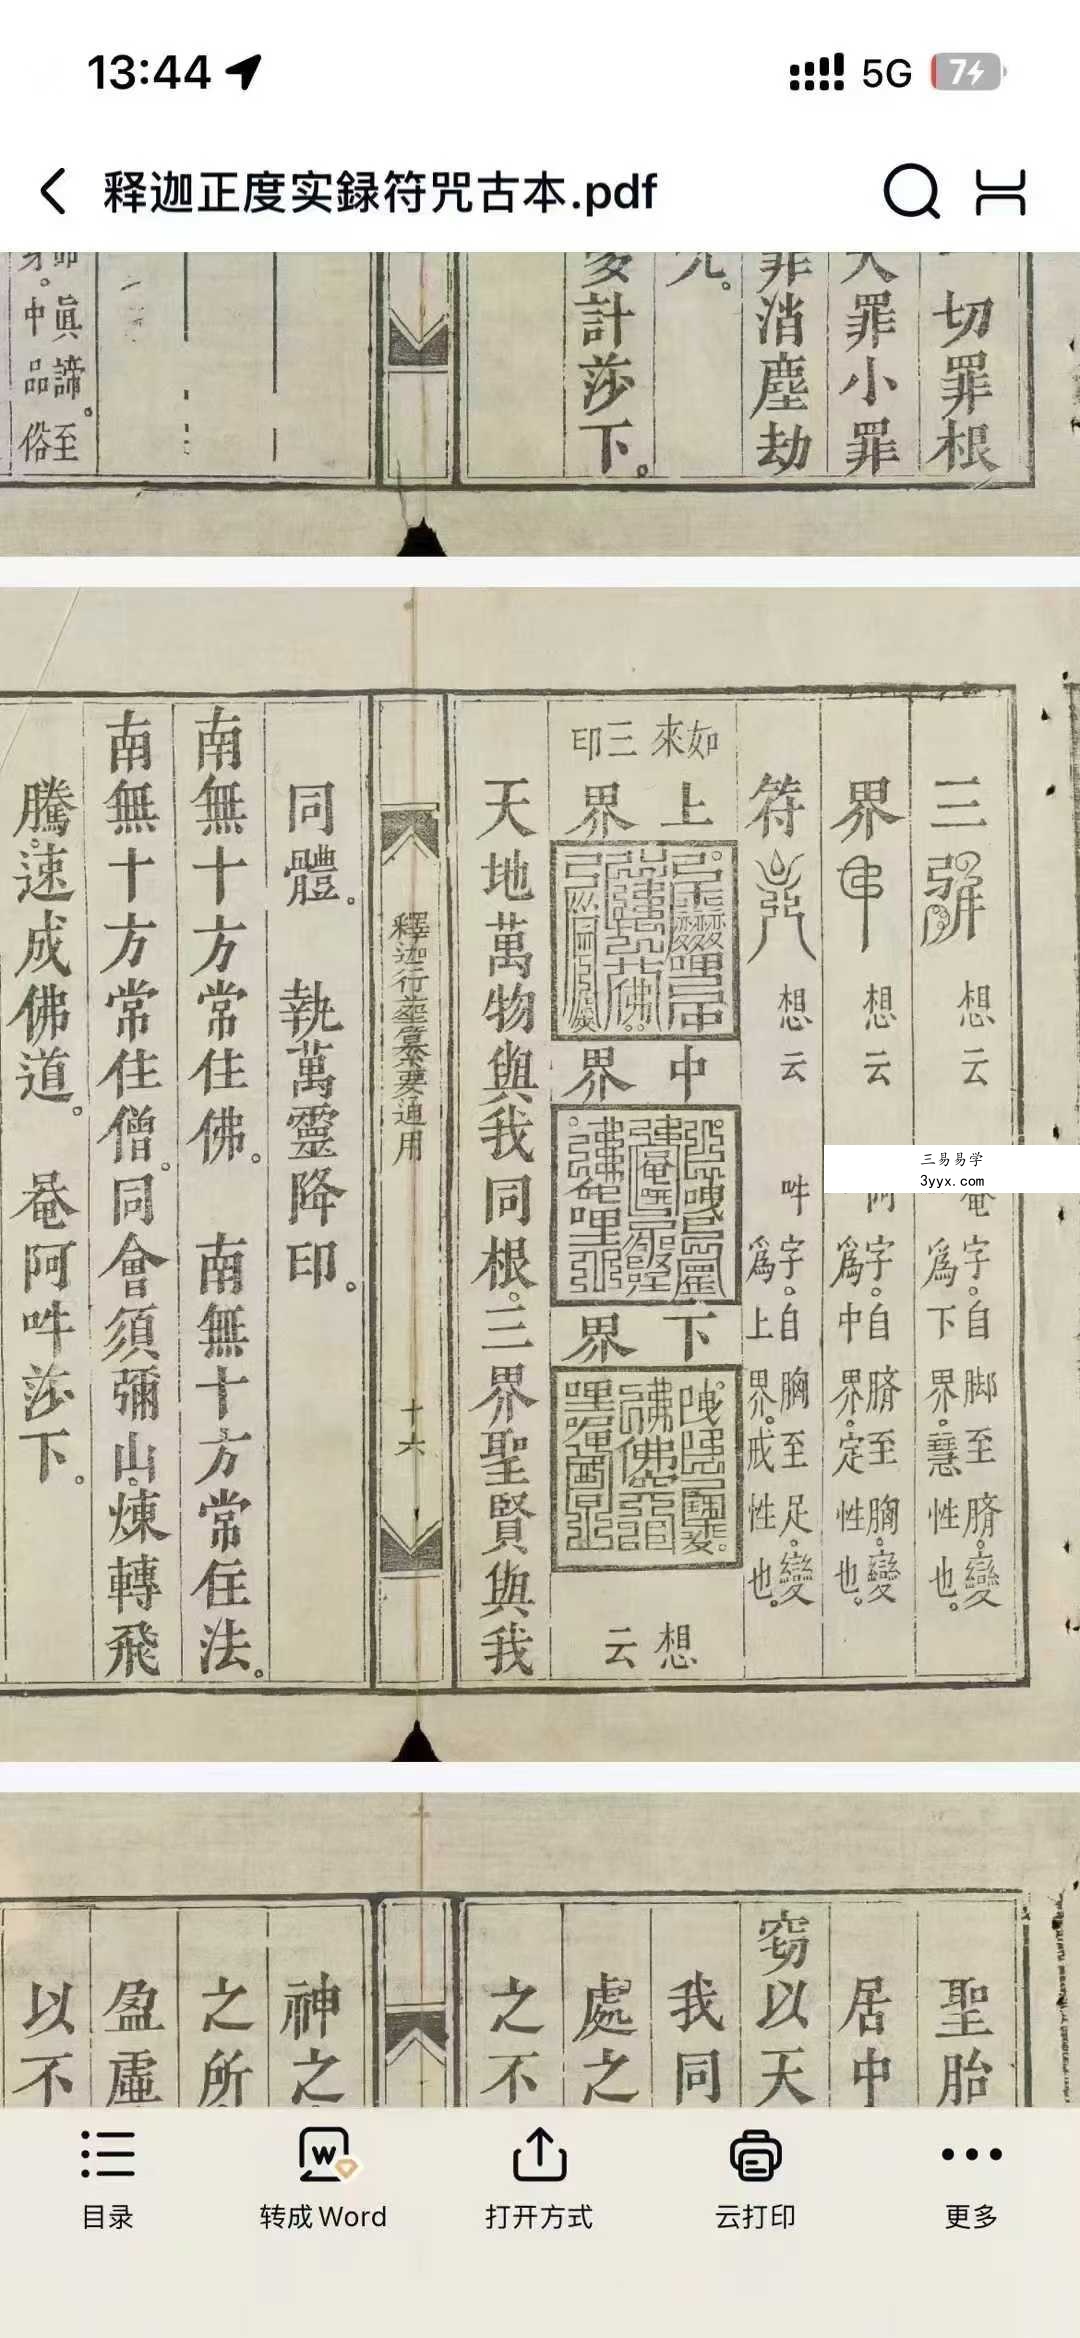 13:44
5G
7
释迦正度实録符咒古本.pdf
切罪根
罪小罪
罪消塵劫
咒。
計莎下。
眞諦。至
中品俗
三
想云
字。自脚至臍。變
爲下界。慧性也。
界
想云
字。自臍至胸。變
爲中界。定性也。
符
想云
吽字。自胸至足。變
爲上界。戒性也。
三易易学
3yyx.com
如來三印
上界
中界
下界
想云
天地萬物與我同根。三界聖賢與我
釋迦行
纂要通用
十六
同體。 執萬靈降印。
南無十方常住佛。 南無十方常住法。
南無十方常住僧。同會須彌山。煉轉飛
騰。速成佛道。 唵阿吽莎下。
聖胎
居中
窃以天
我同
處之
之不
神之
之所
盈虛
以不
目录
转成Word
打开方式
云打印
更多